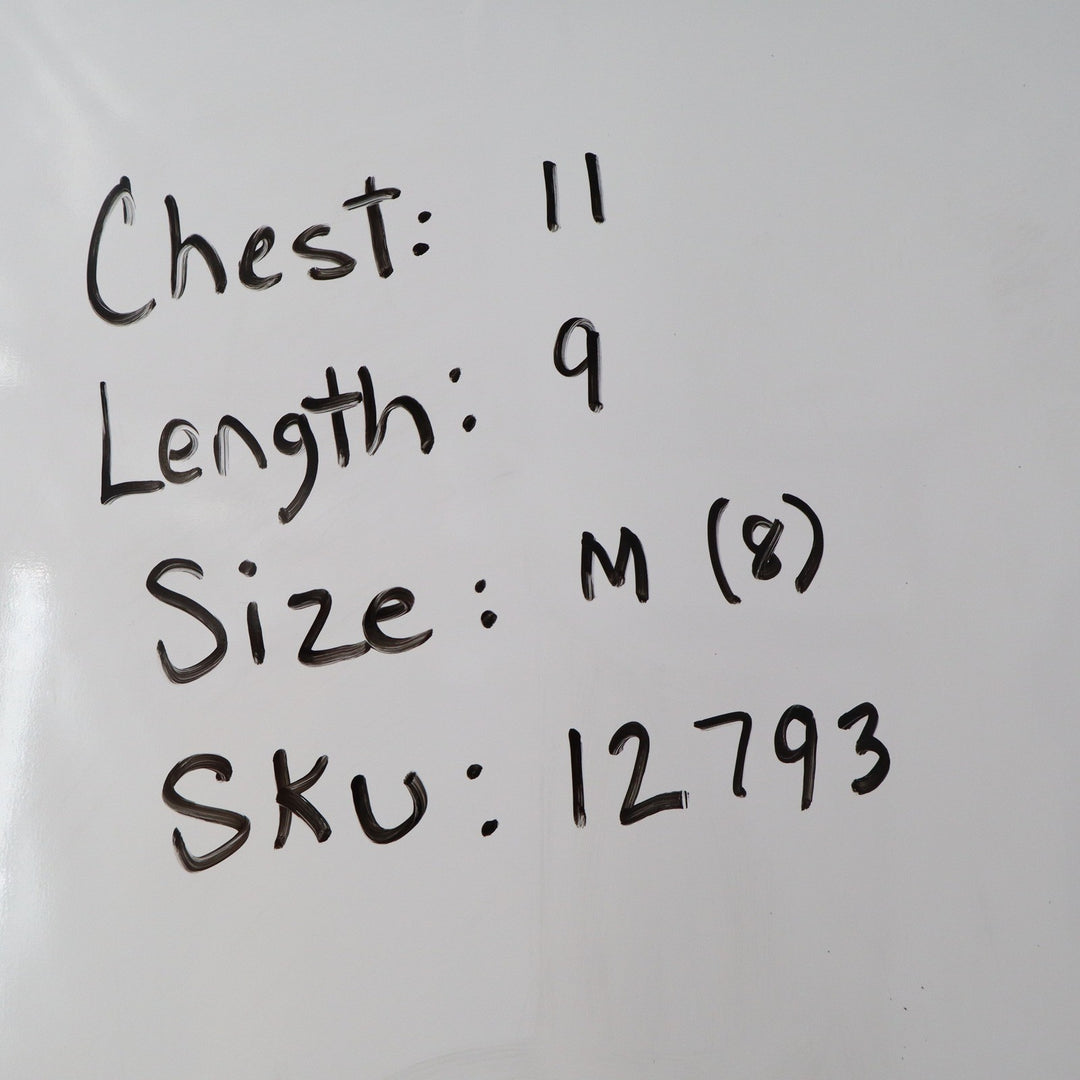 Chest: 11
Length: 9
Size: M (8)
SKU: 12793